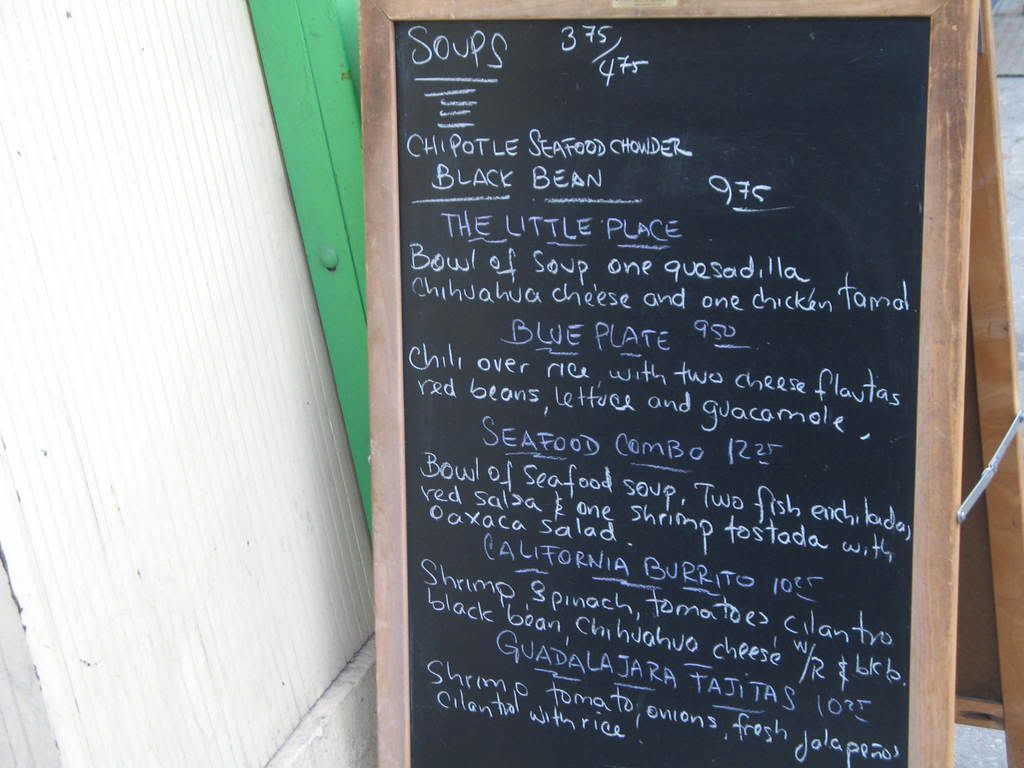 SOUPS 3 75/4 75
CHIPOTLE SEAFOOD CHOWDER
BLACK BEAN 9 75
THE LITTLE PLACE
Bowl of Soup one quesadilla
Chihuahua cheese and one chicken tamal
BLUE PLATE 9 50
Chili over rice, with two cheese flautas
red beans, lettuce and guacamole.
SEAFOOD COMBO 12 25
Bowl of Seafood soup. Two fish enchiladas
red salsa & one shrimp tostada with
Oaxaca salad.
CALIFORNIA BURRITO 10 25
Shrimp Spinach, tomatoes cilantro
black bean, Chihuahua cheese w/R & blk b.
GUADALAJARA FAJITAS 10 25
Shrimp tomato, onions, fresh jalapeños
Cilantro with rice.